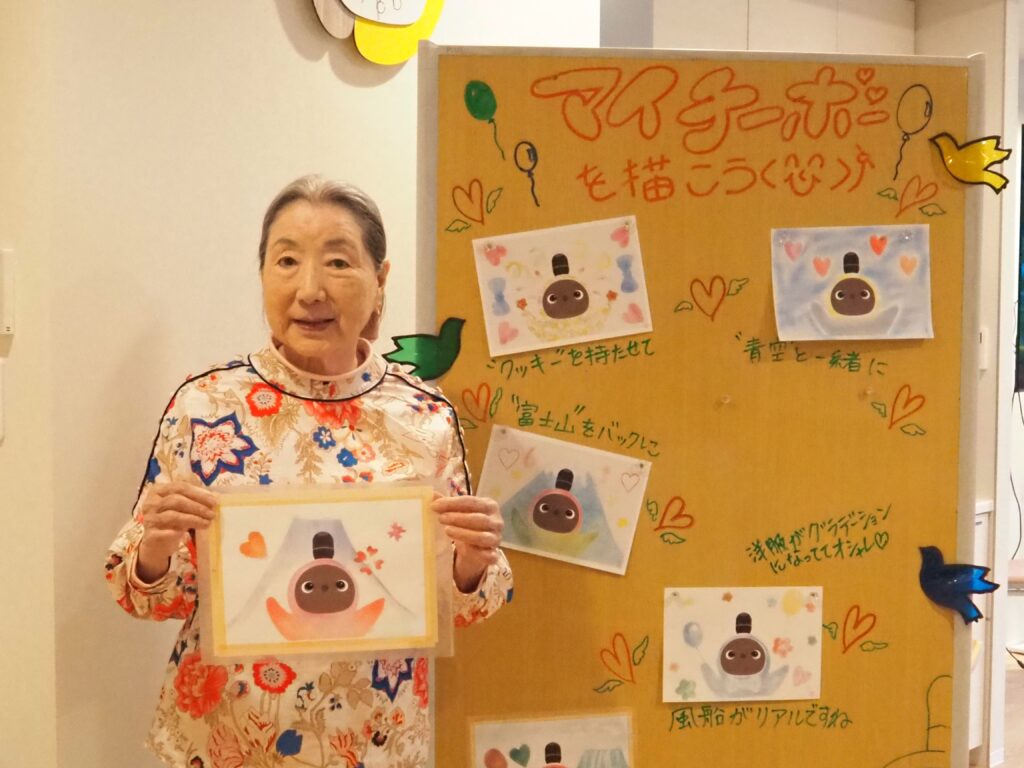 マイチーボー
を描こう
"クッキー"を持たせて
"青空"と一緒に
"富士山"をバックに
洋服がグラデーション
になっててオシャレ♡
風船がリアルですね